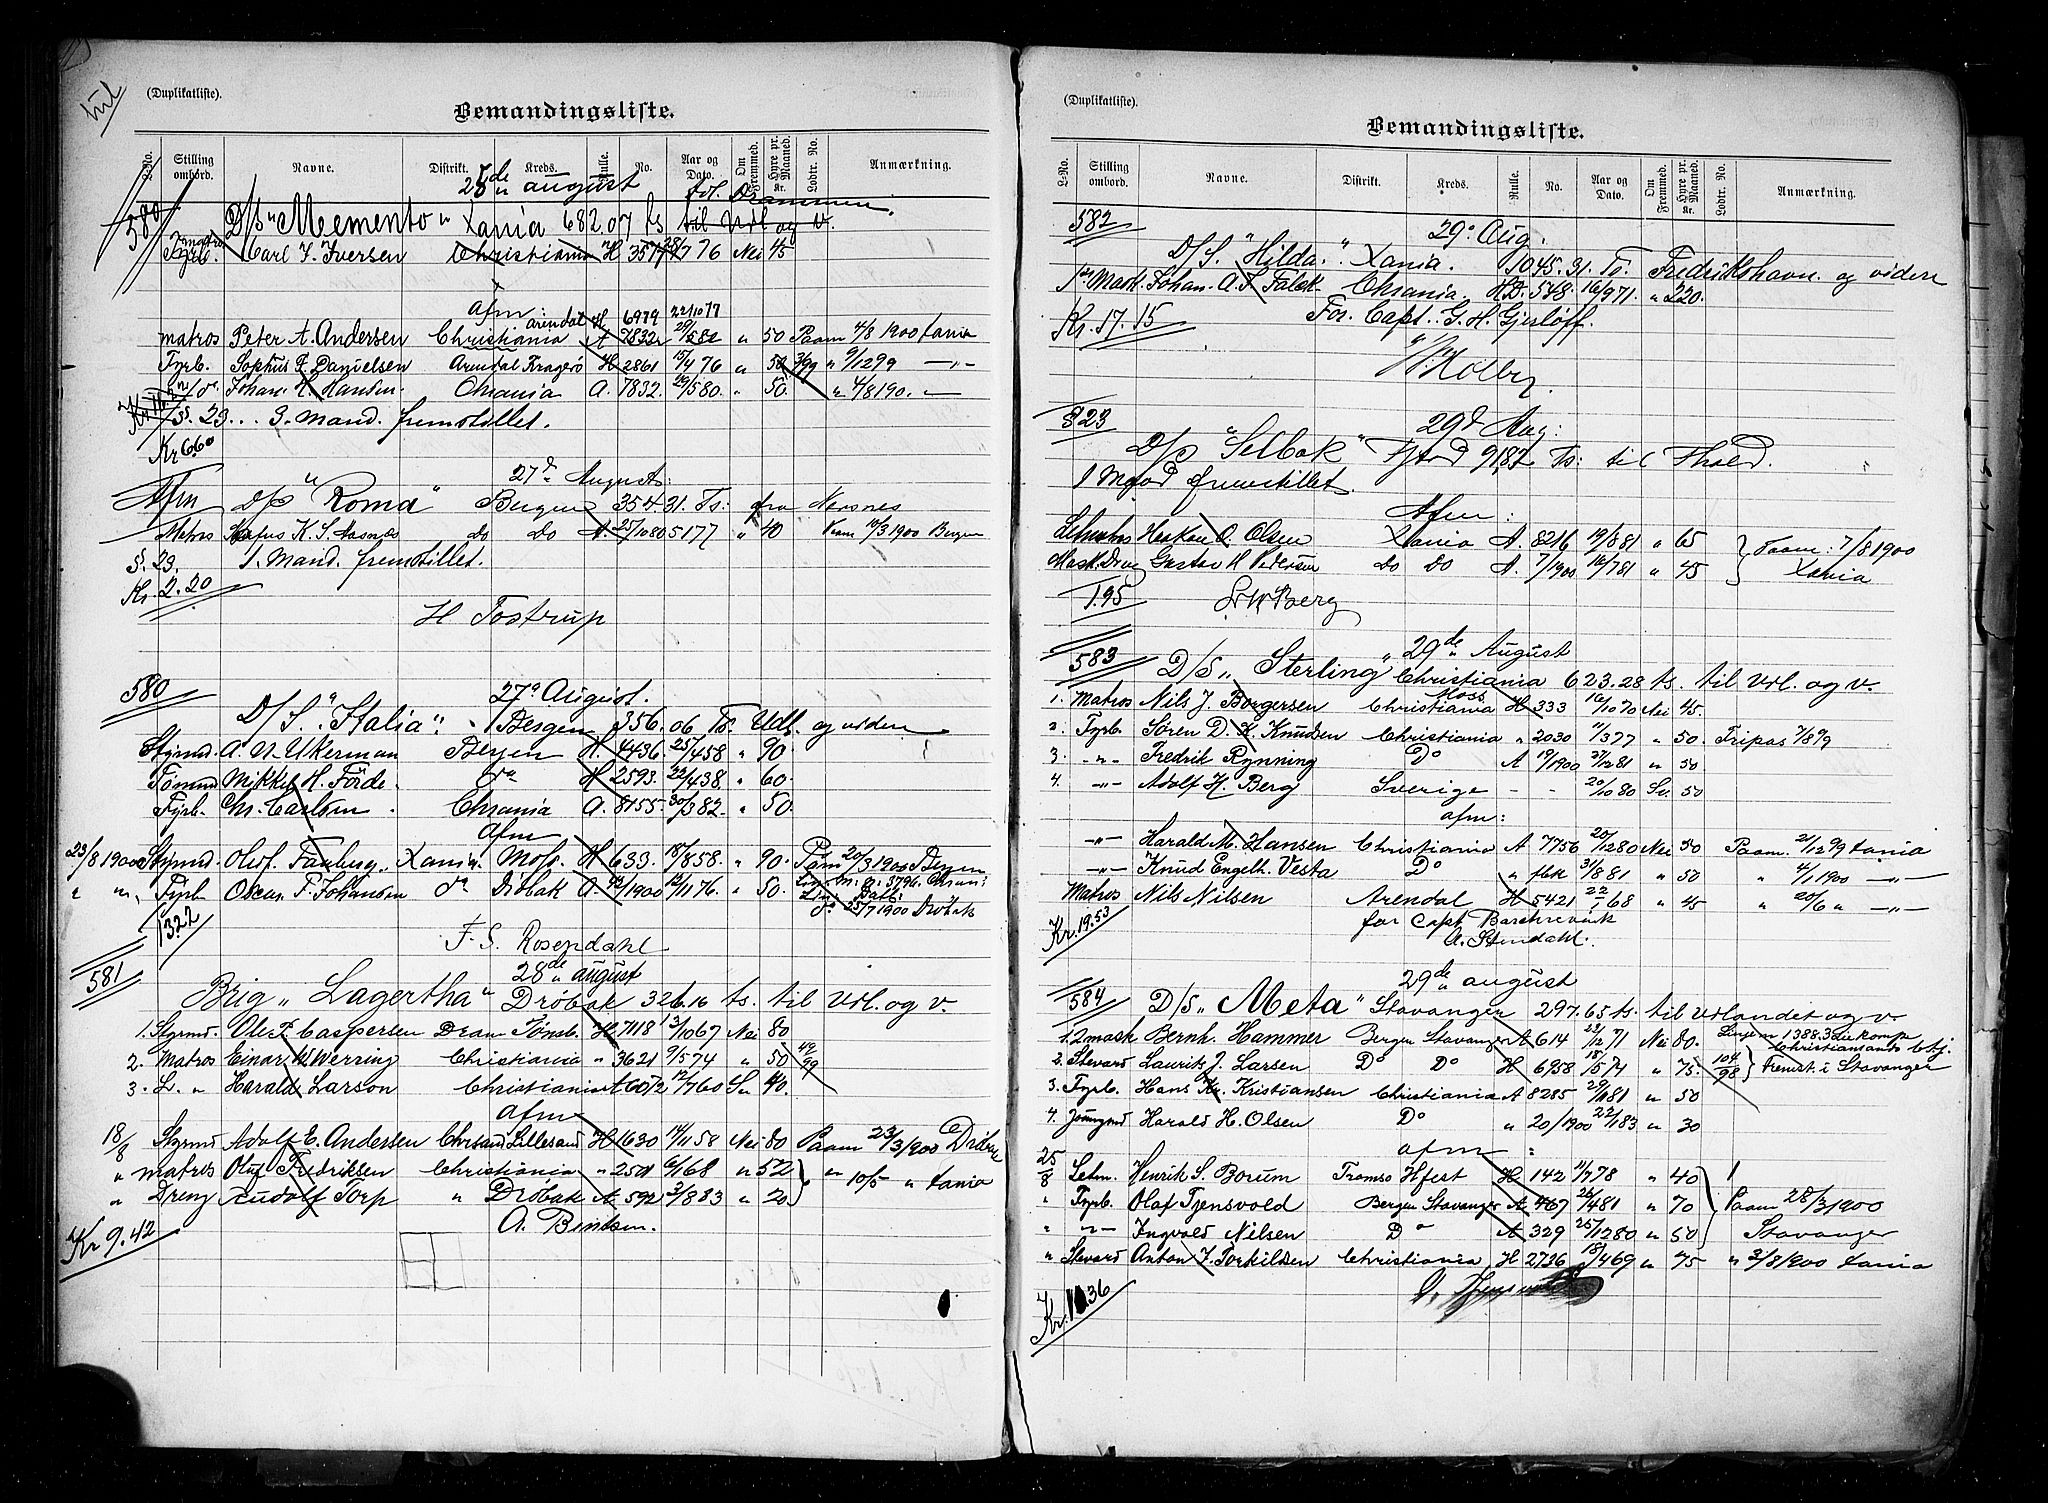 til
(Duplikatliste).
Bemandingsliste.
L-No. Stilling ombord. Navne. Distrikt. Kreds. Rulle. No. Aar og Dato. Om Fremmed. Hyre pr. Maaned. Kr. Lodtr. No. Anmærkning.
28de august fol. Drammen.
580
D/s "Memento" Xania 682.07 ts til Udl og v.
Matros Fyrb. Carl J. Iversen Christiania H 3577 28/7 76 Nei 45
Afm: H 6979 22/10 77
matros Peter A. Andersen Christiania Arendal A 7832 29/5 82 " 50 Paam 4/8 1900 Xania
Fyrb. Sophus F. Danielsen Arendal Kragerø H 2861 15/4 76 " 50 3/99 " 9/12 99 -"-
" do. Johan H. Hansen. Chrania A. 7832. 29/5 80. " 50. " 4/8 190. -
§. 23... 3. Mand. fremstillet.
Kr 6.60
27d Augusts:
Afm D/s "Roma" Bergen 354 31. Ts: fra Nersnes
Matros K. S. Aasnæs do do A. 25/10 80 5177 " 40 Paam 14/3 1900 Bergen
§. 23. 1. Mand. fremstillet.
Kr. 2.20
H Tostrup
580
27d August.
D/S. "Italia". Bergen 356.06 Ts. Udl. og viden
Styrmd. A. N. Ukerman Bergen H. 4436. 25/4 58 " 90.
Tømmd Mikkel H. Förde. do H 2593. 22/4 38. " 60.
Fyrb. Chr. Carlsen. Chrania A. 8155. 30/3 82. " 50.
Afm
23/8 1900 Styrmd. Olof. Fauberg, Xania. Moss. H 633. 18/8 58. " 90. Paam 20/3 1900 Bergen
" " Fyrb Oscar F. Johansen do Dröbak A 1900 12/11 76. " 50. do 25/7 1900 Dröbak
13.22
F. S. Rosendahl
28de august
581
Brig "Lagertha" Dröbak 326.16 ts. til Udl. og v.
1. Styrmd. Ole F. Caspersen Dram Tønsb. H 7118 13/10 67 Nei 80
2. Matros Einar W. Werring Christiania " 3621 9/5 74 " 50 49/99
3. L. " Harald Larson Christiania A 6072 12/7 60 Sv 40.
afm
18/8 Styrmd Adolf E. Andersen Chrsand Lillesand H 1630 14/11 58 Nei 80 Paam 23/3 1900 Dröbak
" matros Oluf Fredriksen Christiania " 2501 6/1 68 " 52 " 10/5 " Xania
" Dreng Rudolf Torp " Dröbak A 592 3/8 83 " 20
A. Bentsen.
Kr 9.42
(Duplikatliste).
Bemandingsliste.
L-No. Stilling ombord. Navne. Distrikt. Kreds. Rulle. No. Aar og Dato. Om Fremmed. Hyre pr. Maaned. Kr. Lodtr. No. Anmærkning.
582
29d Aug.
D/S. "Hilda." Xania. 1045.31. Ts. Fredrikshavn. og videre
1ste Mask. Johan. A. F. Falck. Chrania H.D. 548. 16/9 71. " 220.
Kr. 17.15 For. Capt. G. H. Gjerløff.
Holby
§ 23
29d Aug:
D/s "Selbak" Fstad 9187 Ts: til Fhald.
1 Mand fremstillet.
Afm:
Letmatros Haakon O. Olsen Xania A. 8216 19/8 81 " 65 Paam: 7/8 1900
Mask. Dreng Gustav H Pedersen do do A. 7/1900 16/7 81 " 45 Xania
1.95 Berg
583
29de August
D/S "Sterling" Christiania 623.28 ts. til Udl. og v.
1. Matros Nils J. Borgersen Christiania Moss H 333 16/10 70 Nei 45.
2. Fyrb. Sören D. K. Knudsen Christiania " 2030 11/3 77 " 50. Fripas 7/8 99
3. -"- Fredrik Rynning Do A 19/1900 27/12 81 " 50
4. -"- Adolf H. Berg Sverige - - 20/10 80 Sv. 50
afm:
-"- Harald M. Hansen Christiania A 7756 20/12 80 Nei 50 Paam. 21/12 99 Xania
-"- Knud Engelh. Vesta Do " fbk 31/8 81 " 50 " 4/1 1900 -"-
Matros Nils Nilsen Arendal H 5421 22/1 68 " 45 " 20/6 " -"-
Kr. 19.53 for Capt Barchrevink
A. Stendahl.
29de august
584 D/S "Meta" Stavanger 297.65 ts. til Udlandet og v.
1. 2mask Bernh. Hammer Bergen Stavanger A 614 22/12 71 Nei 80.
2. Stevard Laurits J. Larsen Do Do H 6958 18/5 74 " 75. 104/98 Fremst. i Stavanger
3. Fyrb. Hans Kr. Kristiansen Christiania A 8285 29/1 81 " 50
4. Jungmd Harald H. Olsen Do " 20/1900 22/1 83 " 30
afm:
25/8 Letm. Henrik S. Borum Tromsö Hfest H 142 11/7 78 " 40
" Fyrb. Olaf Tjensvold Bergen Stavanger A 467 26/4 81 " 70 Paam 28/3 1900
" -"- Ingvald Nilsen Do A 329 25/12 80 " 50 Stavanger
" Stevard Anton J. Torkildsen Christiania H 2736 18/4 69 " 75 " 3/8 1900 Xania
Kr. 11.36